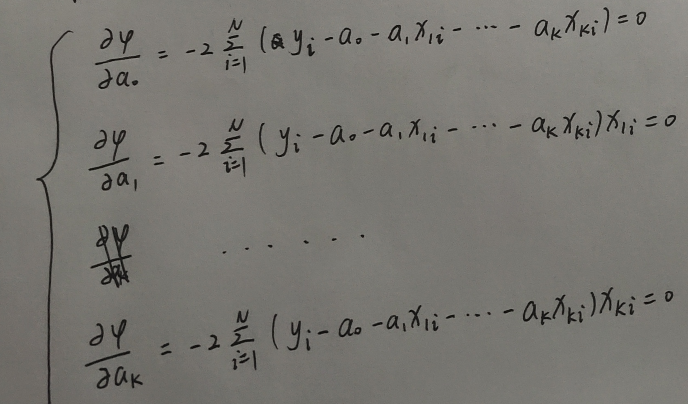 ∂φ/∂a₀ = -2 ∑_{i=1}^{N} (y_i - a₀ - a₁x_{1i} - ⋯ - a_k x_{ki}) = 0
∂φ/∂a₁ = -2 ∑_{i=1}^{N} (y_i - a₀ - a₁x_{1i} - ⋯ - a_k x_{ki}) x_{1i} = 0
∂φ/∂ ······
∂φ/∂a_k = -2 ∑_{i=1}^{N} (y_i - a₀ - a₁x_{1i} - ⋯ - a_k x_{ki}) x_{ki} = 0